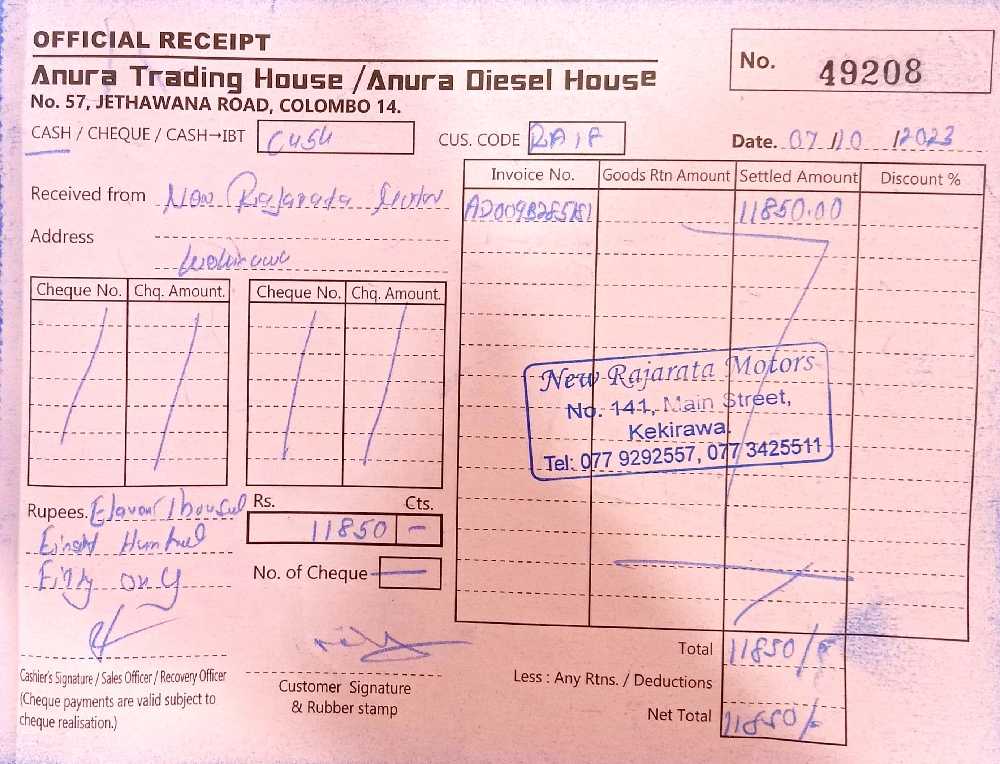 OFFICIAL RECEIPT
Anura Trading House /Anura Diesel House
No. 57, JETHAWANA ROAD, COLOMBO 14.
No. 49208
CASH / CHEQUE / CASH→IBT Cash
CUS. CODE
Date. 07/10/2023
Received from New Rajarata
Address
Cheque No. Chq. Amount. Cheque No. Chq. Amount.
Invoice No. Goods Rtn Amount Settled Amount Discount %
11850.00
New Rajarata Motors
No. 141, Main Street,
Kekirawa.
Tel: 077 9292557, 077 3425511
Rupees. Thousand
Fifty only
Rs. Cts.
11850 -
No. of Cheque -
Total 11850/-
Less : Any Rtns. / Deductions
Net Total 11850/-
Cashier's Signature / Sales Officer / Recovery Officer
(Cheque payments are valid subject to
cheque realisation.)
Customer Signature
& Rubber stamp